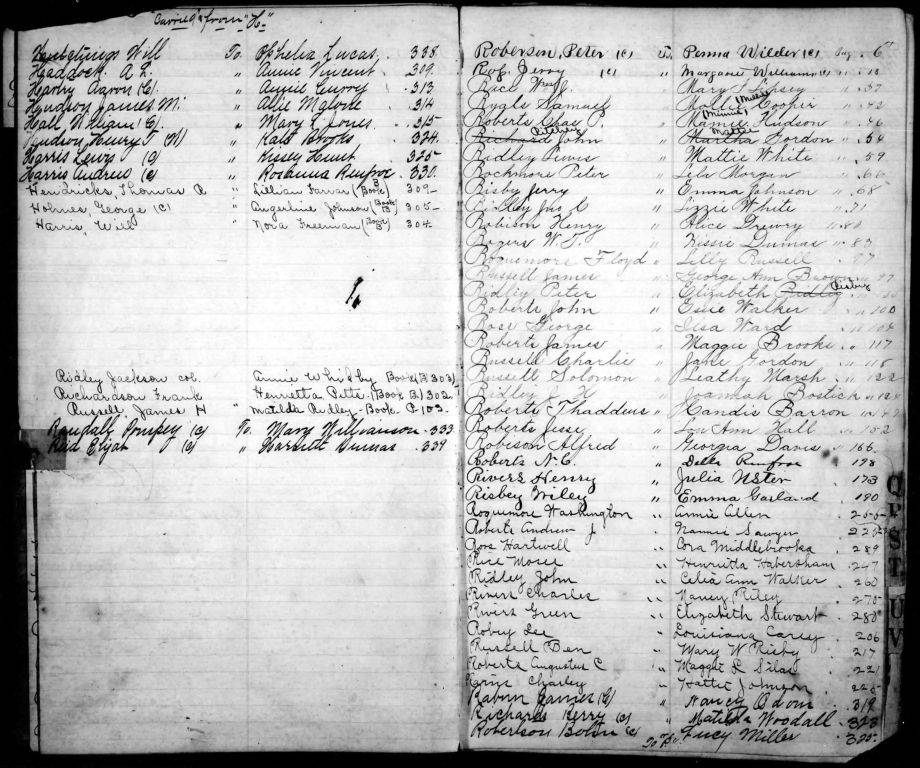 "Carried" from "H."
Will To Ophelia Lucas, 338
Haddock A. L. " Annie Vincent, 309
Aaron (C). " 313
Hudson James M. " Malone 314
Hall William (C). " Mary L. Jones, 315
Hudson, Henry T (W) " Kate Brooks 324.
Harris Lewis (c) " Kissey Hunt 325
Harris Andrew (c) " Rosanna Renfroe 330.
Hendricks, Thomas R " Lillian Farrar (Book B 309-
Holmes, George (C) " Angerline Johnson (Book B) 305-
Harris, Will " Nora Freeman (Book B) 304.
Ridley Jackson col. Annie Whisby Book (B 303)
Richardson Frank Henrietta Pitts - (Book B.) 302
Russell, James H " Matilda Ridley - Book 103.
Randall Pompey (c) To. Mary Williamson. 333
Elijah (c) " Harriett Dumas .334
Roberson, Peter (C) To, Wilder (C) Pag. 6
Jerry (C) " Margaret Williams (c) " 18
Race " Mary Lipsey " 37
Ryals Samuel " Mollie Cooper " 42
Roberts P. " (Minnie) Mamie Hudson " 46
John " (Mattie) Martha Gordon " 54
Ridley " Mattie White " 59
Rockmore Peter " Lela Morgan " 66
Risby Jerry " Emma Johnson " 68
Ridley Jno C " Lizzie White
Robison Henry " Alice Drewry " 80
Rogers W. T. " Kissie Dumas " 83
Roquemore Floyd " Lilly Russell " 97
Russell James " George Ann Brown " 97
Ridley Peter " Elizabeth Ridley Risby
Roberts John " Walker " 100
Rose George " Ward " 104
Roberts James " Maggie Brooks " 117
Russell Charlie " Jane Gordon " 118
Russell Solomon " Leathy Marsh " 122
Ridley " Joannah Bostick
Roberts Thaddeus " Kandis Barron
Roberts Jesse " Lou Ann Hall " 152
Robison Alfred " Georgia Davis " 166
Roberts N. C. " Della Renfroe 198
Rivers Henry " Julia 173
Risbey Wiley " Emma Garland 190
Roquemore Washington " Annie Allen 255
Roberts Andrew J. " Nannie Sawyer
Rose Hartwell " Cora Middlebrooks 289
Rice Moses " Henrietta Habersham 247
Ridley John " Celia Ann Walker 260
Rivers Charles " Nancy Riley 275
Rivers Green " Elizabeth Stewart 280
Robey Lee " Louisiana Carey 206
Russell Ben " Mary W Risby 217
Roberts Augustus C " Maggie L Silas 221
Charley " Hattie Johnson 225
James (C) " Nancy Odom 319
Richards Berry (c) " Matilda Woodall 323
Roberson (c) To Lucy Miller 325.
Q
R
S
T
U
V